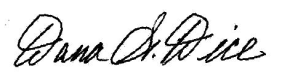 Dana S. Dice